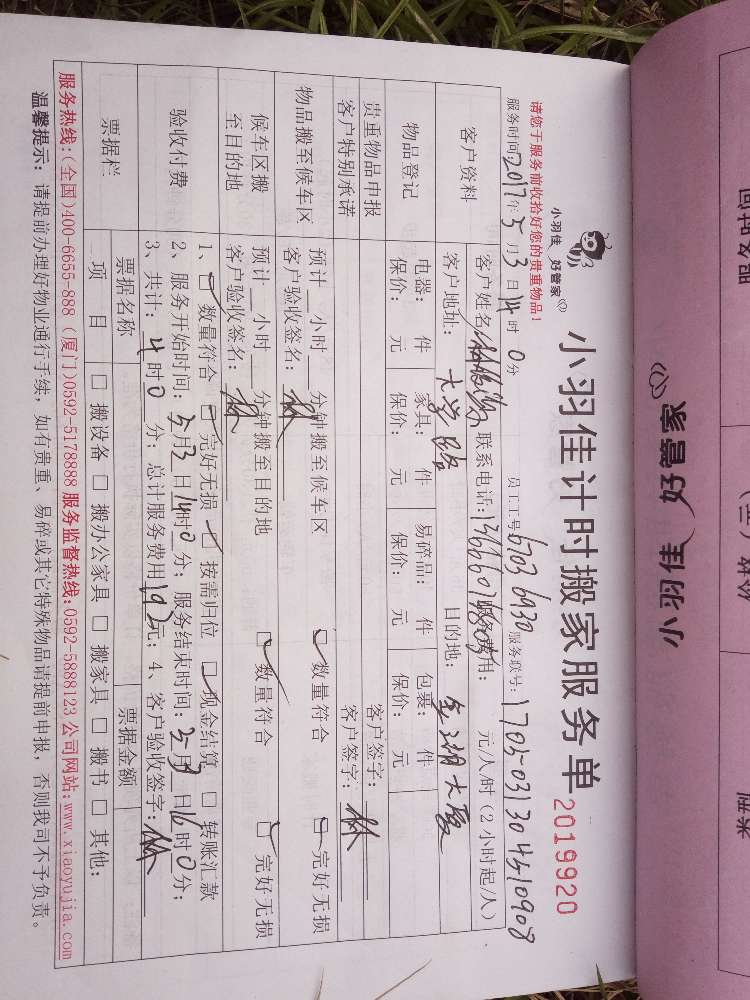 小羽佳 好管家
小羽佳 好管家
小羽佳计时搬家服务单 2019920
请您于服务前收拾好您的贵重物品！
服务时间2017年5月3日14时0分 员工工号6703 6930 服务联号：
客户资料 客户姓名 联系电话： 服务费用： 元/人/时（2小时起/人）
客户地址： 目的地： 金湖大厦
物品登记 电器： 件 家具： 件 易碎品： 件 包裹： 件
保价： 元 保价： 元 保价： 元 保价： 元
贵重物品申报 客户签字：
客户特别承诺 客户签字：林
物品搬至候车区 预计__小时__分钟搬至候车区 ☑数量符合 ☑完好无损
客户验收签名：林
候车区搬至目的地 预计__小时__分钟搬至目的地 ☑数量符合 ☑完好无损
客户验收签名：林
验收付费 1、☑数量符合 ☑完好无损 ☑按需归位 ☑现金结算 □转账汇款
2、服务开始时间：5月3日14时0分；服务结束时间：5月3日16时0分；
3、共计：4时0分；总计服务费用192元；4、客户验收签字：林
票据栏 票据名称 票据金额
项目 □搬设备 □搬办公家具 □搬家具 □搬书 □其他：
服务热线：(全国)400-6655-888 (厦门)0592-5178888 服务监督热线：0592-5888123 公司网站：www.xiaoyujia.com
温馨提示：请提前办理好物业通行手续，如有贵重、易碎或其它特殊物品请提前申报，否则我司不予负责。